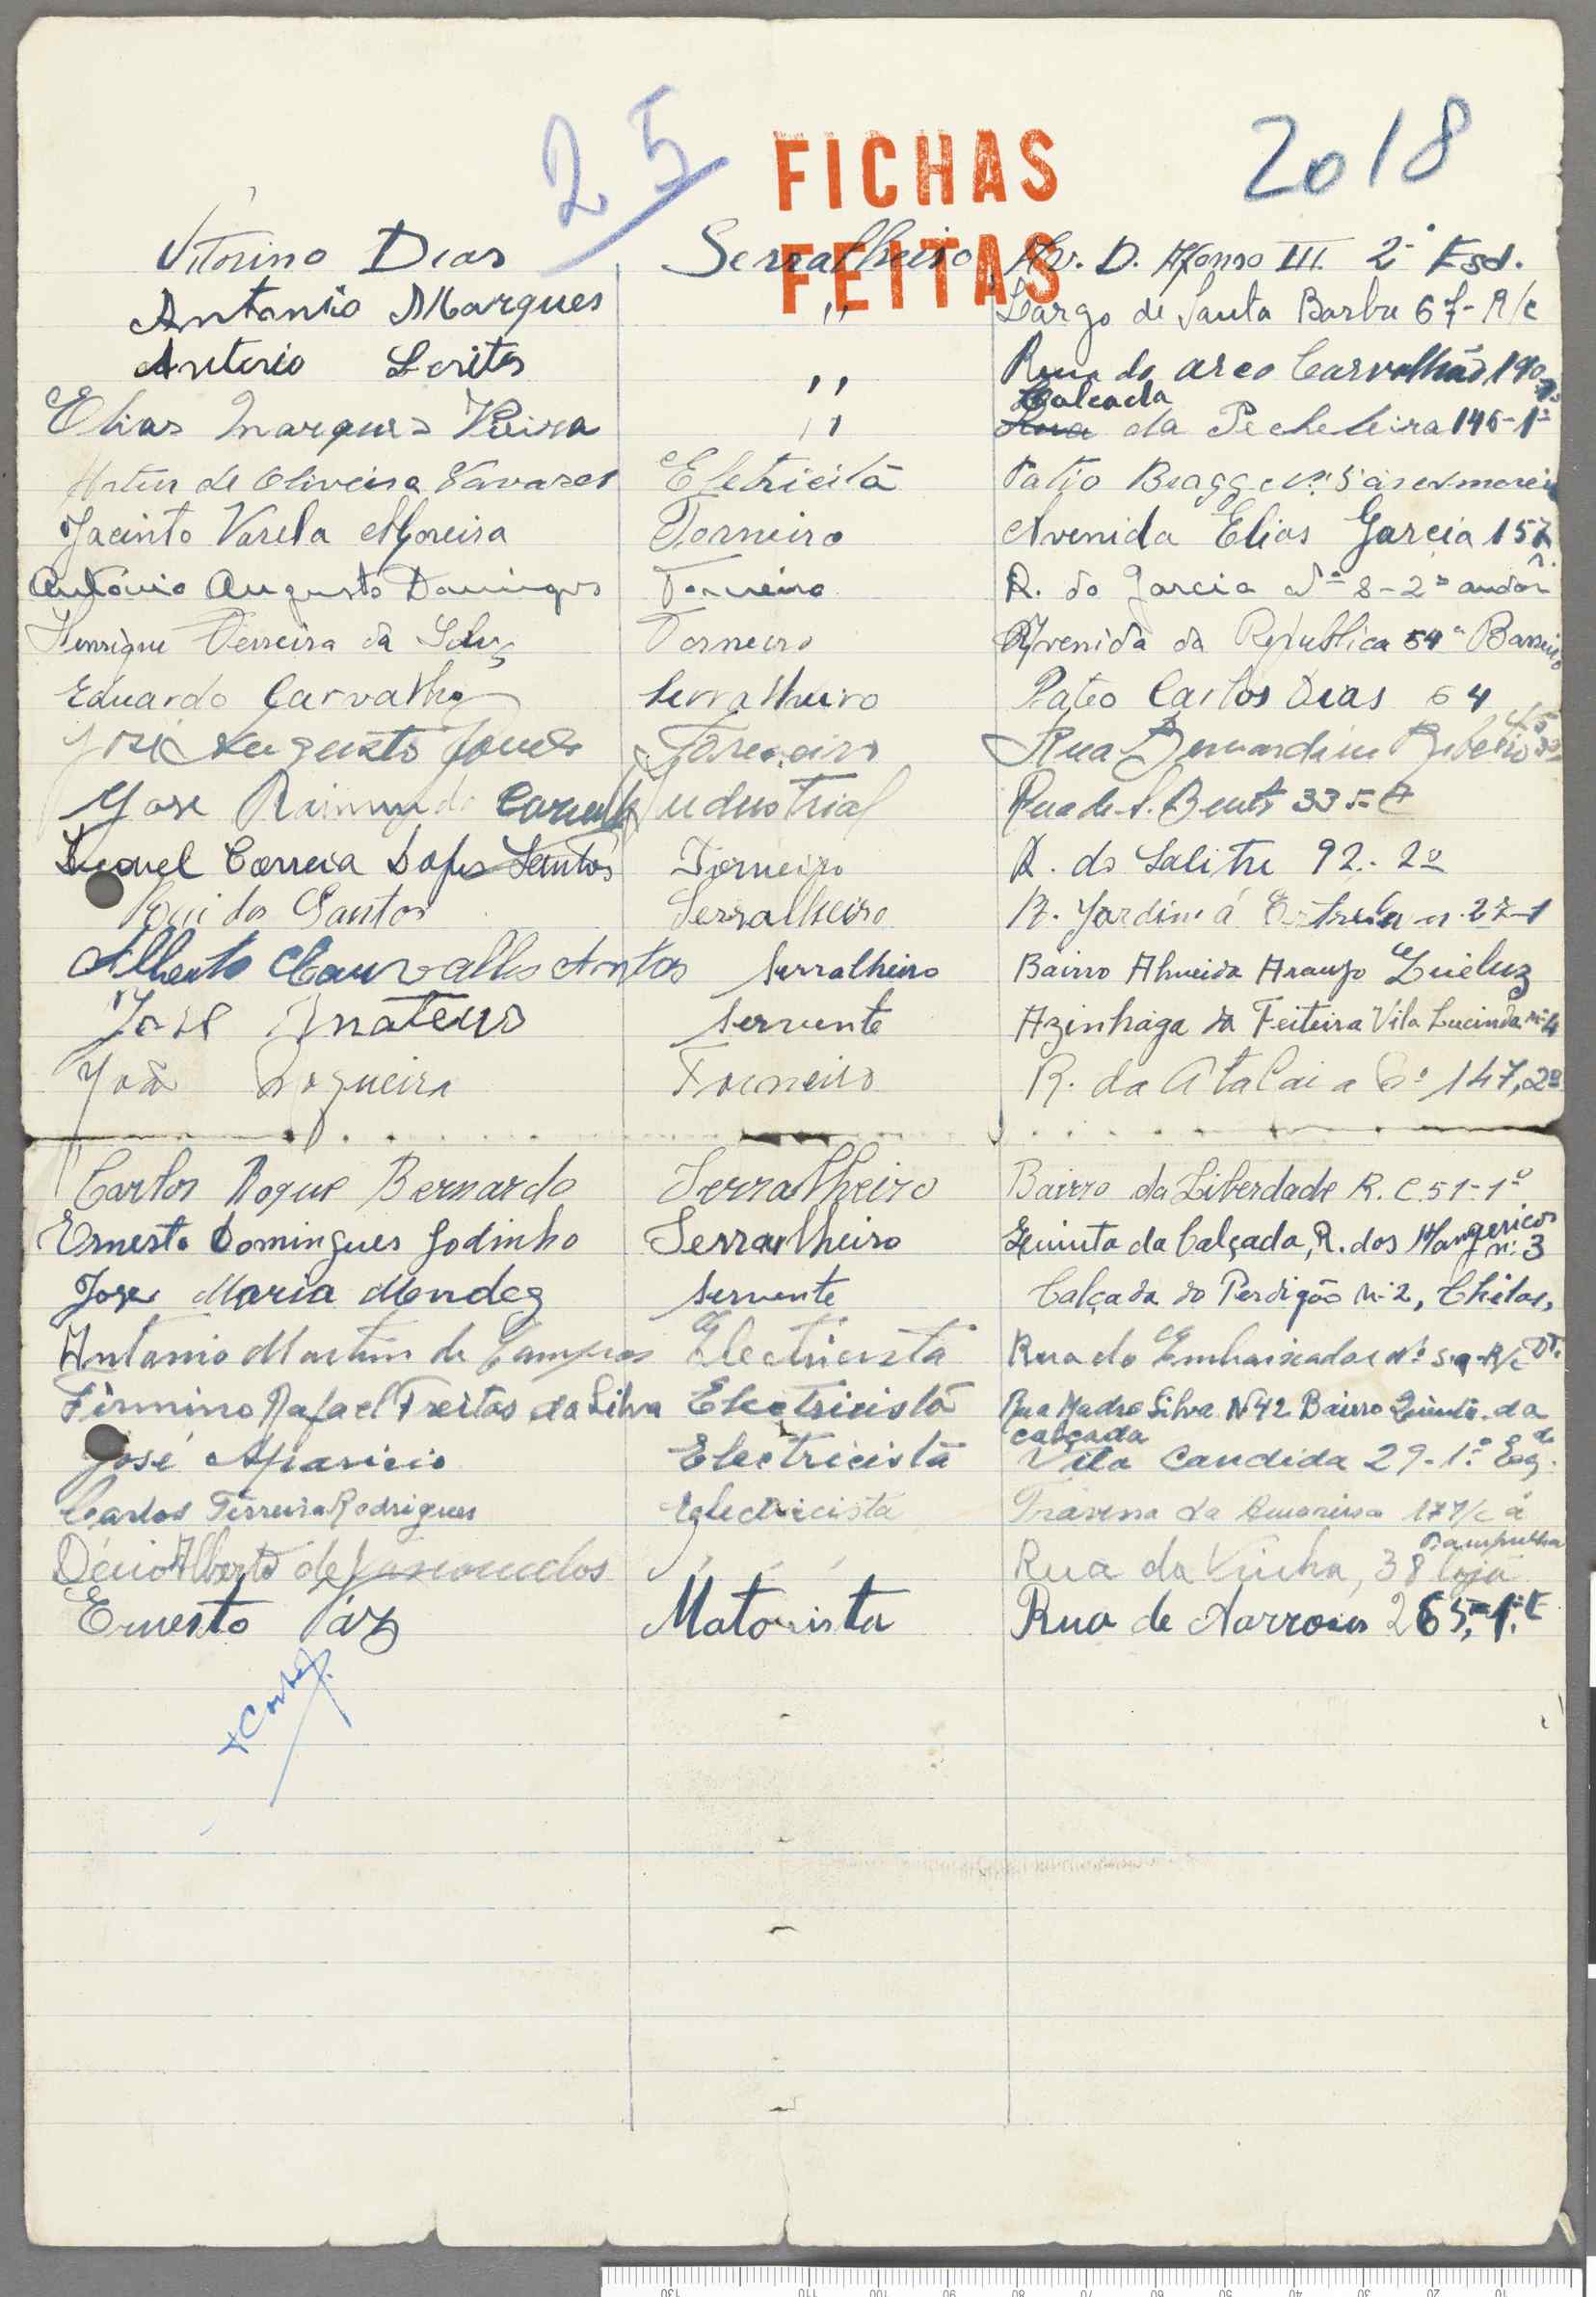 25
FICHAS
FEITAS
2018
Vitorino Dias Serralheiro Av. D. Afonso III. 2º Esd.
Antonio Marques " Largo de Santa Barbra 67- R/c
Leritos " Rua do Arco Carvalhão 190
Calçada
Elias Marques Vieira " Rua da Picheleira 146-1º
Artur de Oliveira Tavares Eletricitã Patio Bragg Nº 5
Jacinto Varela Moreira Torneiro Avenida Elias Garcia 157
António Augusto Domingos Torneiro R. do Garcia Nº 8-2º andar
Henrique Ferreira da Silva Torneiro Avenida da Republica 54 Barreiro
Eduardo Carvalho Serralheiro Pateo Carlos Dias 64
José Augusto Torneiro Rua Bernardim Ribeiro
José Raimundo Industrial Rua de S. Bento 335
Correia Lopes Santos Torneiro R. do Salitre 92-2º
Rui dos Santos Serralheiro R. Jardim á Estrela n. 27-1
Alberto Carvalho Antos Serralheiro Bairro Almeida Araujo Queluz
José Mateus Servente Azinhaga da Feiteira Vila Lucinda nº 4
João Nogueira Torneiro R. da Atalaia nº 147, 2º
Carlos Roque Bernardo Serralheiro Bairro da Liberdade R. C. 51-1º
Ernesto Domingues Godinho Serralheiro Quinta da Calçada, R. dos Mangericos nº 3
José Maria Mendez Servente Calçada do Perdigão nº 2, Chelas,
Antonio Martins de Campos Electricista Rua do Embaixador Nº R/c Dt.
Firmino Rafael Freitas da Silva Electricistã Rua Madre Silva N 42 Bairro Quinta da
calçada
José Aparicio Electricistã Vila Candida 29-1º Esq. do
Carlos Ferreira Rodrigues Electricista Travessa da 177/c á
Pampulha
Décio Alberto de Vasconcelos " Rua da Vinha, 38 loja
Ernesto Páz Motorista Rua de Arroios 265, 1º E